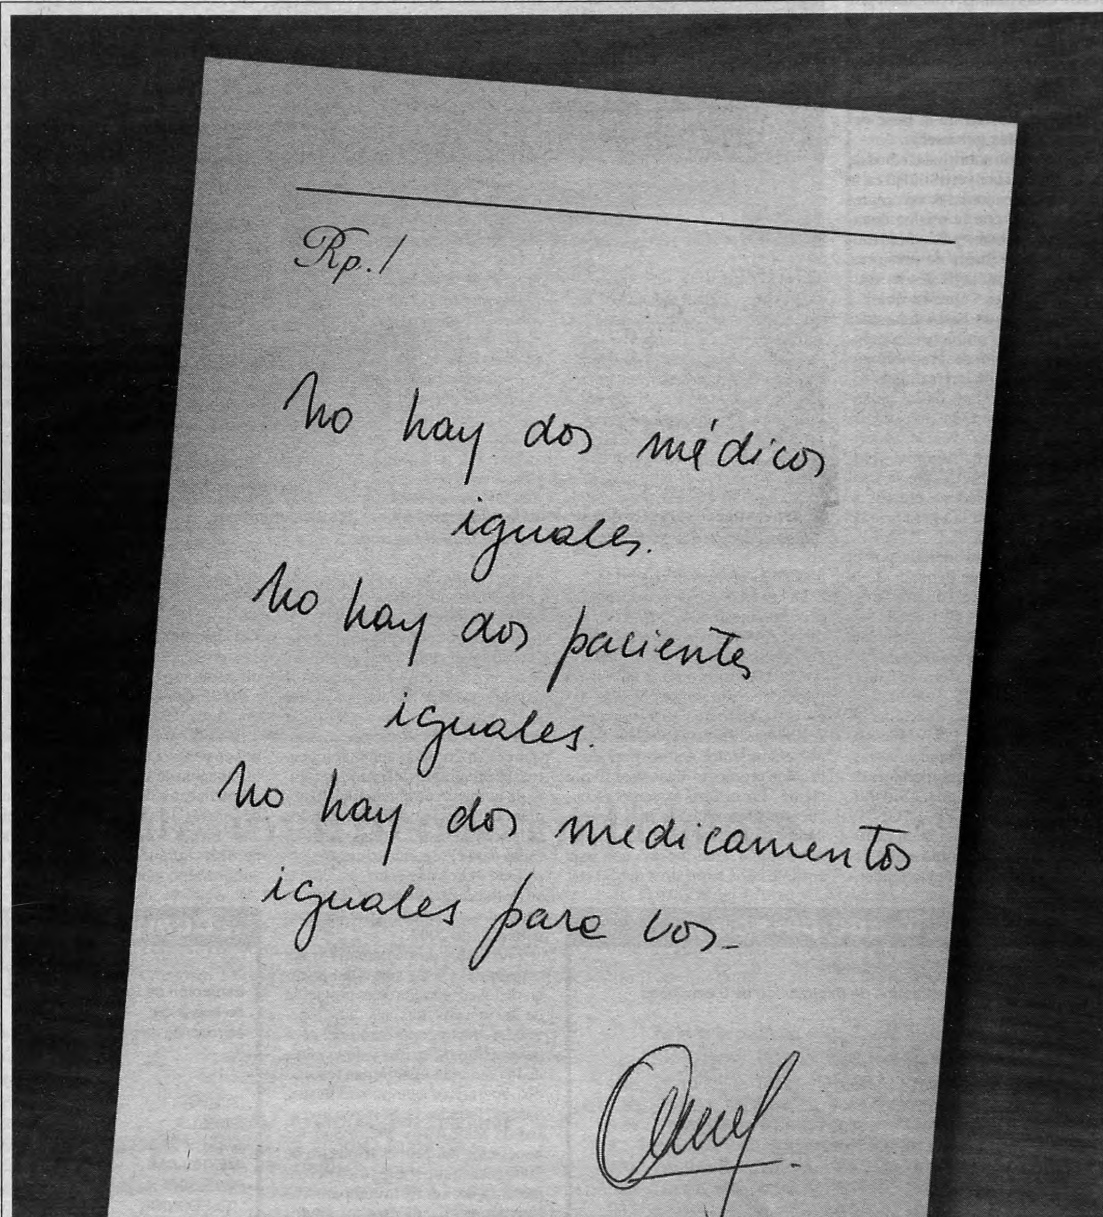 Rp./
No hay dos médicos
iguales.
No hay dos pacientes
iguales.
No hay dos medicamentos
iguales para vos.